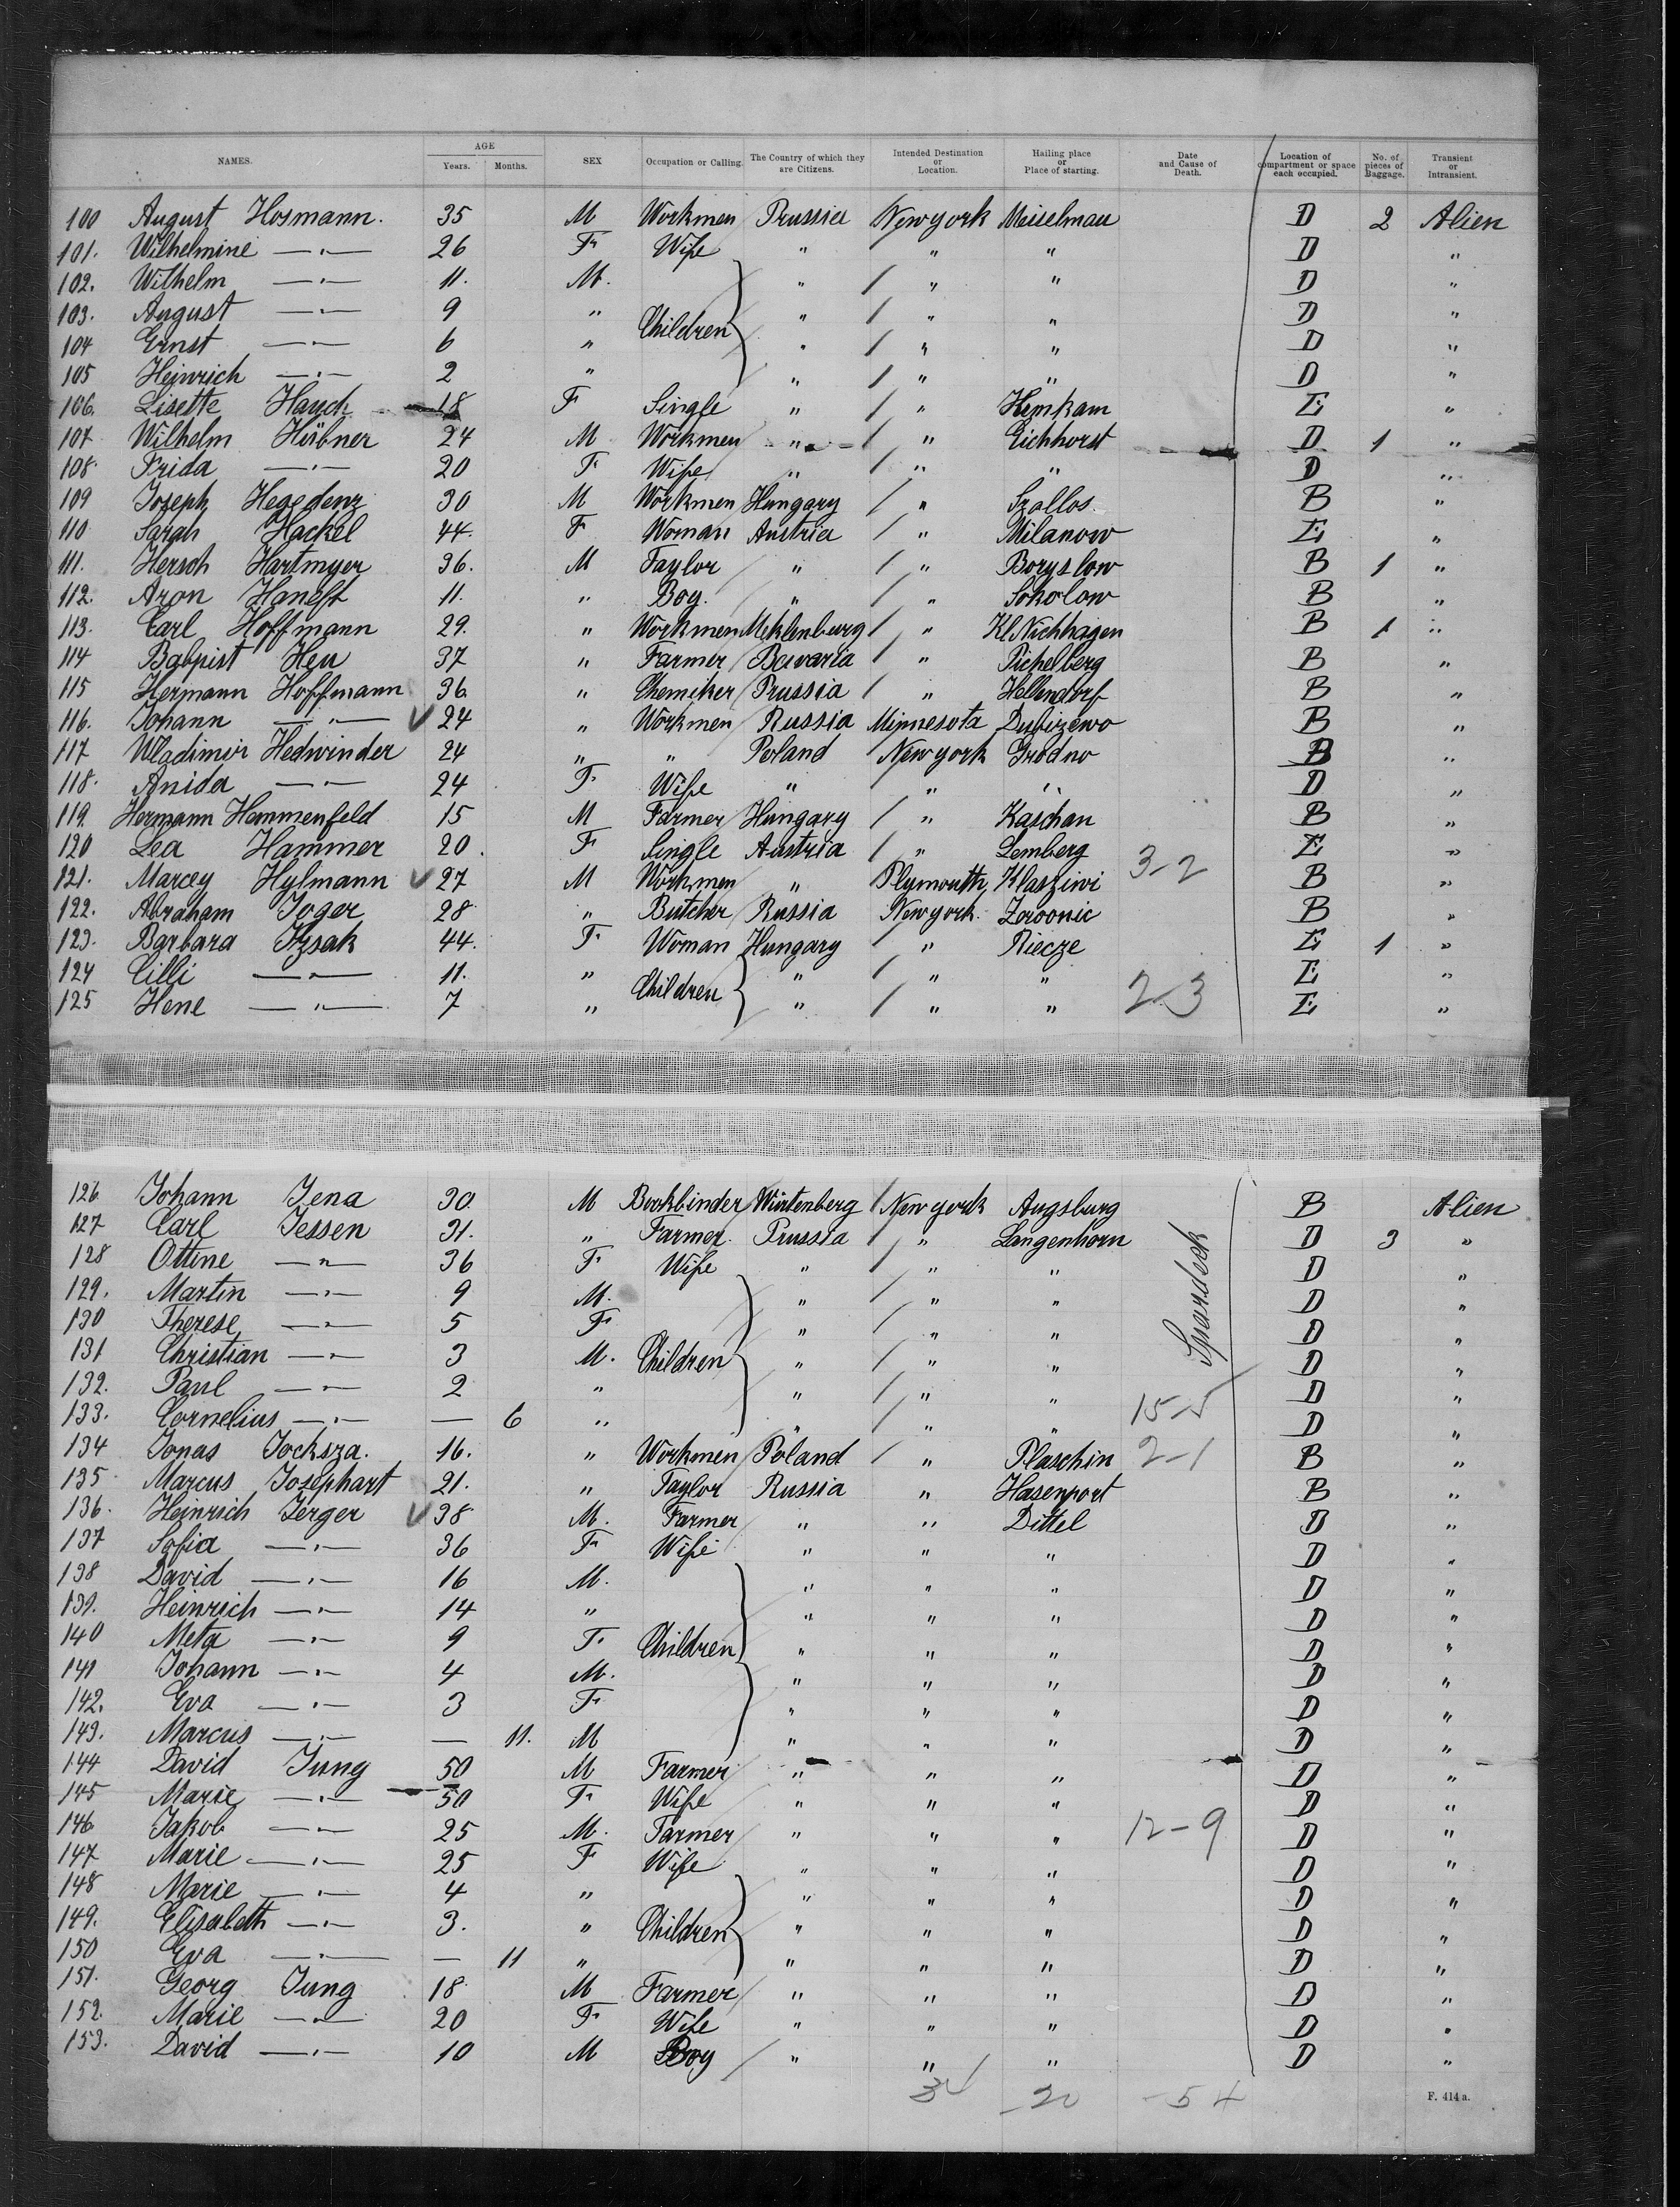 NAMES. AGE Years. Months. SEX Occupation or Calling. The Country of which they are Citizens. Intended Destination or Location. Hailing place or Place of starting. Date and Cause of Death. Location of compartment or space each occupied. No. of pieces of Baggage. Transient or Intransient.
100 August Hosmann. 35 M Workmen Prussia New york Meiselmau D 2 Alien
101. Wilhelmine —"— 26 F. Wife " " " D "
102. Wilhelm —"— 11. M. " " " D "
103. August —"— 9 " Children " " " D "
104 Ernst —"— 6 " " " " D "
105 Heinrich —"— 2 " " " " D "
106. Lisette Hauch 18 F Single " " Hemkam E "
107 Wilhelm Hübner 24 M Workmen " " Eichhorst D 1 "
108. Frida —"— 20 F. Wife " " " D "
109 Joseph Hegedenz 30 M Workmen Hungary " Szallos. B "
110 Sarah Hackel 44. F Woman Austria " Milanow E "
111. Hersch Hartmyer 36. M Taylor " " Boryslow B 1 "
112. Aron Haneft 11. " Boy. " " Sokolow B "
113. Carl Hoffmann 29. " Workmen Meklenburg " Kl Nichhagen B 1 "
114 Babpist Heu 37 " Farmer Bavaria " Pichelberg B "
115 Hermann Hoffmann 36. " Chemiker Prussia " Hellendorf B "
116. Johann —"— 24 " Workmen Russia Minnesota Dubizewo B "
117 Wladimir Hedwinder 24 " " Poland New york Grodno B "
118. Anida —"— 24 F. Wife " " " D "
119. Hermann Hammenfeld 15 M Farmer Hungary " Kaschau B "
120 Lea Hammer 20. F Single Austria " Lemberg E "
121. Marcey Hylmann 27 M Workmen " Plymouth Klasziwi 3-2 B "
122. Abraham Joger 28 " Butcher Russia New york. Zoroonic B "
123. Barbara Itzsak 44. F. Woman Hungary " Riecze E 1 "
124 Cilli —"— 11. " Children " " " E "
125 Hene —"— 7 " " " " 2-3 E "
126 Johann Jena 30. M Bookbinder Würtenberg New york Augsburg B Alien
127 Carl Jessen 31. " Farmer. Prussia " Langenhorn D 3 "
128 Ottine —"— 36 F. Wife " " " D "
129. Martin —"— 9 M. " " " D "
130 Therese —"— 5 F. " " " D "
131 Christian —"— 3 M. Children " " " D "
132. Paul —"— 2 " " " " D "
133. Cornelius —"— — 6 " " " " 15-5 D "
134 Jonas Jocksza. 16. " Workmen Poland " Plaschin 2-1 B "
135 Marcus Josephart 21. " Taylor Russia " Hasenport B "
136. Heinrich Jerger 38 M. Farmer " " Dittel D "
137 Sofia —"— 36 F. Wife " " " D "
138 David —"— 16 M. " " " D "
139. Heinrich —"— 14 " " " " D "
140 Meta —"— 9 F. Children " " " D "
141 Johann —"— 4 M. " " " D "
142. Eva —"— 3 F. " " " D "
143. Marcus —"— — 11. M " " " D "
144 David Jung 50 M Farmer " " " D "
145 Marie —"— 50 F. Wife " " " D "
146 Jakob —"— 25 M. Farmer " " " 12-9 D "
147 Marie —"— 25 F Wife " " " D "
148 Marie —"— 4 " " " " D "
149. Elisabeth —"— 3. " Children " " " D "
150 Eva —"— — 11 " " " " D "
151. Georg Jung 18. M Farmer " " " D "
152. Marie —"— 20 F. Wife " " " D "
153. David —"— 10 M Boy " " " D "
-20 -54
F. 414 a.